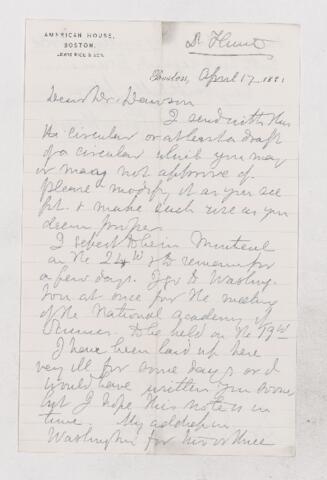 AMERICAN HOUSE,
BOSTON.
LEWIS RICE & SON.
Dr Hunt
Boston, April 17 1881
Dear Dr. Dawson
I send with this
the circular or at least a draft
of a circular which you may
or may not approve of.
please modify it as you see
fit & make such use as you
deem proper.
I expect to be in Montreal
on the 24th & to remain for
a few days. I go to Washing
ton at once for the meeting
of the National Academy of
Sciences to be held on the 19th
I have been laid up here
very ill for some days or I
would have written you sooner
but I hope this note is in
time. My address in
Washington for two or three